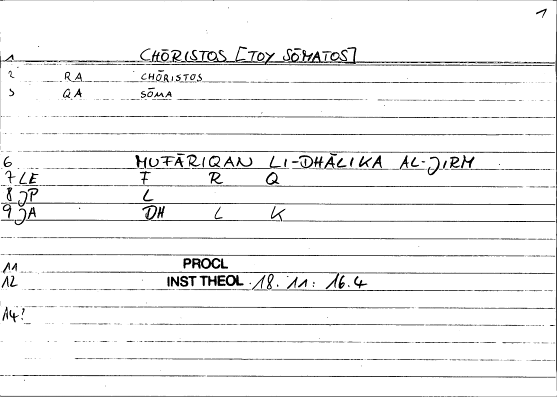 1
1 CHŌRISTOS [TOY SŌMATOS]
2 RA CHŌRISTOS
3 QA SŌMA
6 MUFĀRIQAN LI-DHĀLIKA AL-JIRM
7 LE F R Q
8 JP L
9 JA DH L K
11 PROCL
12 INST THEOL 18.11: 16.4
14?